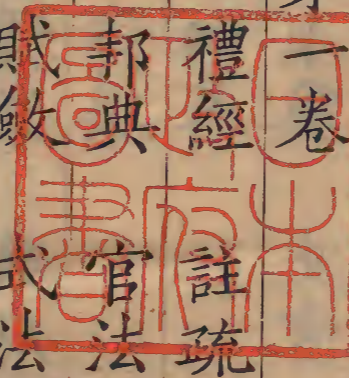 一卷
禮經 註疏
邦典 官法
賦斂 式法
日本
政府
圖書